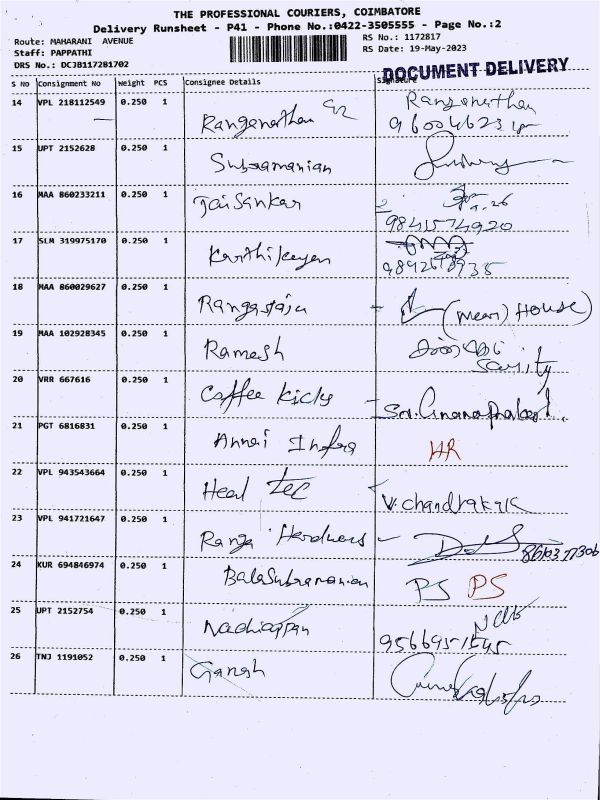 THE PROFESSIONAL COURIERS, COIMBATORE
Delivery Runsheet - P41 - Phone No.:0422-3505555 - Page No.:2
Route: MAHARANI AVENUE
Staff: PAPPATHI
DRS No.: DCJB117281702
RS No.: 1172817
RS Date: 19-May-2023
DOCUMENT DELIVERY
S No Consignment No Weight PCS Consignee Details Signature
14 VPL 218112549 0.250 1 Ranganathan Ranganathan
96004623
15 UPT 2152628 0.250 1 Subramanian
16 MAA 860233211 0.250 1 Jaisankar
9841574920
17 SLM 319975170 0.250 1 Karthikeyan
18 MAA 860029627 0.250 1 Rangaraju (mean) House)
19 MAA 102928345 0.250 1 Ramesh
20 VRR 667616 0.250 1 Coffee Kicks
21 PGT 6816831 0.250 1 Annai Infra HR
22 VPL 943543664 0.250 1 Head Tec V. Chandrakak
23 VPL 941721647 0.250 1 Ranga Herdwers
24 KUR 694846974 0.250 1 BalaSubramanian PS PS
25 UPT 2152754 0.250 1 Nachiappan
26 TNJ 1191052 0.250 1 Ganesh